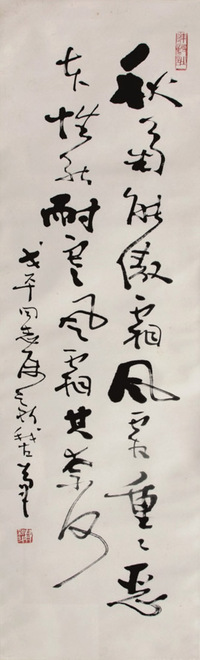 秋菊能傲霜风霜重重恶
本性能耐寒风霜其奈何
戈平同志属